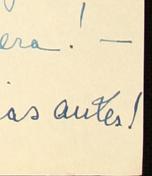 !
era! —
ias antes!